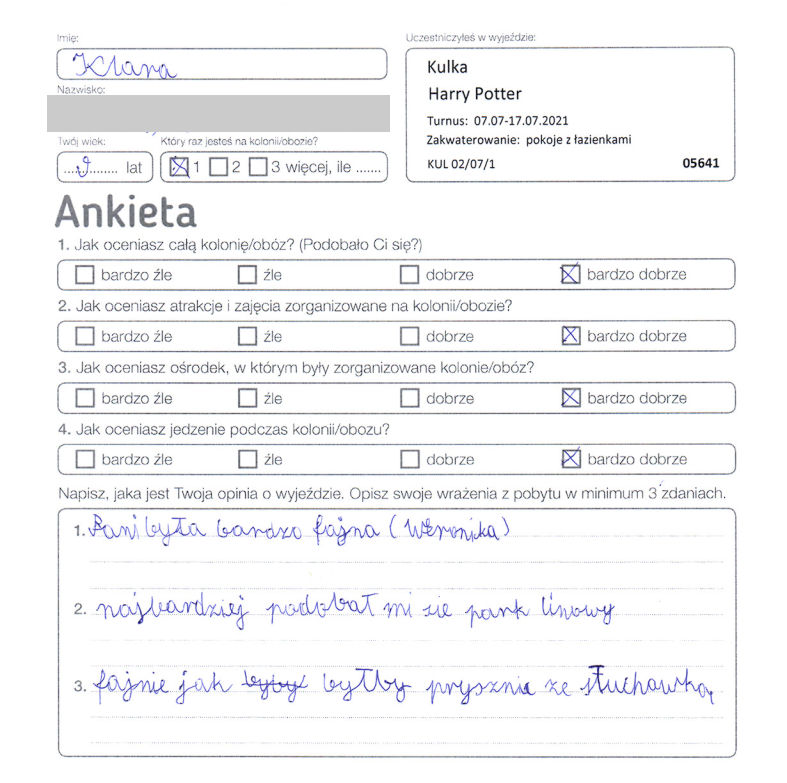 Imię:
Uczestniczyłeś w wyjeździe:
Klara
Kulka
Harry Potter
Nazwisko:
Turnus: 07.07-17.07.2021
Zakwaterowanie: pokoje z łazienkami
KUL 02/07/1 05641
Twój wiek: Który raz jesteś na kolonii/obozie?
...9........ lat 1 2 3 więcej, ile .......
Ankieta
1. Jak oceniasz całą kolonię/obóz? (Podobało Ci się?)
bardzo źle źle dobrze bardzo dobrze
2. Jak oceniasz atrakcje i zajęcia zorganizowane na kolonii/obozie?
bardzo źle źle dobrze bardzo dobrze
3. Jak oceniasz ośrodek, w którym były zorganizowane kolonie/obóz?
bardzo źle źle dobrze bardzo dobrze
4. Jak oceniasz jedzenie podczas kolonii/obozu?
bardzo źle źle dobrze bardzo dobrze
Napisz, jaka jest Twoja opinia o wyjeździe. Opisz swoje wrażenia z pobytu w minimum 3 zdaniach.
1. Pani była bardzo fajna (Weronika)
2. najbardziej podobał mi sie park linowy
3. fajnie jak byłby prysznic ze słuchawką